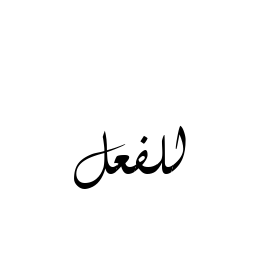 للفعل